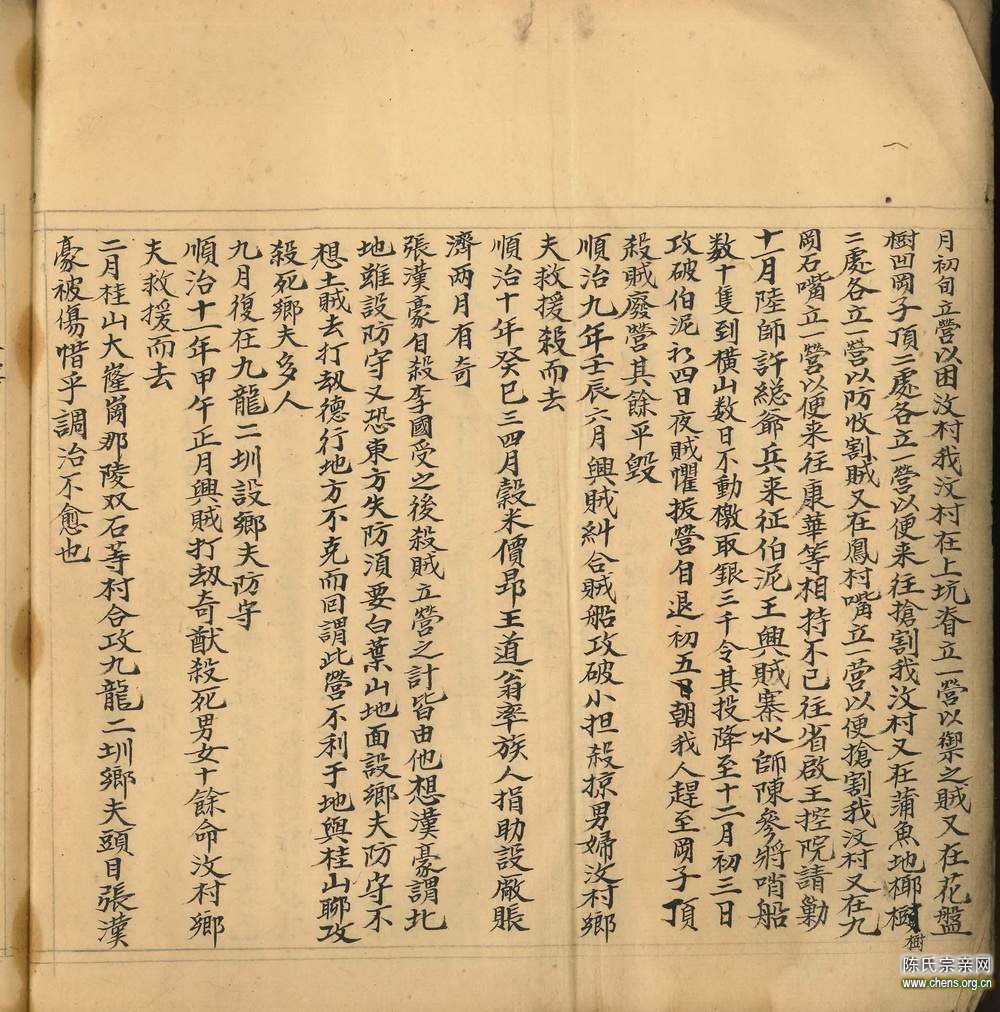 月初旬立營以困汶村我汶村在上坑脊立一營以禦之賊又在花盤
樹凹岡子頂二處各立一營以便来往搶割我汶村又在蒲魚地椰樹
樹
二處各立一營以防收割賊又在鳳村嘴立一营以便搶割我汶村又在九
岡石嘴立一營以便来往康華等相持不已往省啟王控院請勦
十一月陸師許総爺兵来征伯泥王興賊寨水師陳參將哨船
数十隻到橫山数日不動檄取銀三千令其投降至十二月初三日
攻破伯泥初四日夜賊懼拔營自退初五日朝我人趕至岡子頂
殺賊廢營其餘平毀
順治九年壬辰六月興賊糾合賊船攻破小担殺掠男婦汶村鄉
夫救援殺而去
順治十年癸巳三四月穀米價昂王道翁率族人捐助設厰賬
濟两月有奇
張漢豪自殺李國受之後殺賊立營之計皆由他想漢豪謂北
地雖設防守又恐東方失防湏要白葉山地面設鄉夫防守不
想土賊去打劫德行地方不克而回謂此營不利于地與桂山聯攻
殺死鄉夫多人
九月復在九龍二圳設鄉夫防守
順治十一年甲午正月興賊打劫奇猷殺死男女十餘命汶村鄉
夫救援而去
二月桂山大窿崗那陵双石等村合攻九龍二圳鄉夫頭目張漢
豪被傷惜乎調治不愈也
陈氏宗亲网
www.chens.org.cn